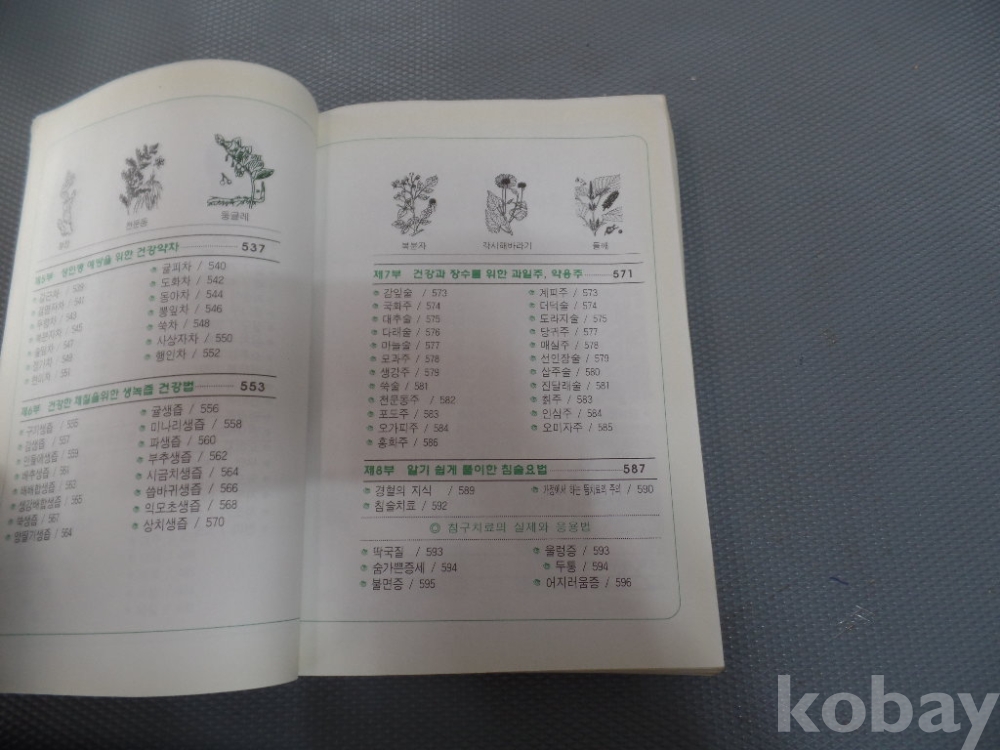 천문동
둥글레
제5부 성인병 예방을 위한 건강약차 537
귤피차 / 540
도화차 / 542
동아차 / 544
뽕잎차 / 546
쑥차 / 548
사상자차 / 550
행인차 / 552
제6부 건강한 체질을위한 생녹즙 건강법 553
구기생즙 / 555
귤생즙 / 556
미나리생즙 / 558
파생즙 / 560
부추생즙 / 562
시금치생즙 / 564
씀바귀생즙 / 566
익모초생즙 / 568
상치생즙 / 570
복분자
각시해바라기
들깨
제7부 건강과 장수를 위한 과일주, 약용주 571
감잎술 / 573
국화주 / 574
대추술 / 575
다래술 / 576
마늘술 / 577
모과주 / 578
생강주 / 579
쑥술 / 581
천문동주 / 582
포도주 / 583
오가피주 / 584
홍화주 / 586
계피주 / 573
더덕술 / 574
도라지술 / 575
당귀주 / 577
매실주 / 578
선인장술 / 579
삽주술 / 580
진달래술 / 581
칡주 / 583
인삼주 / 584
오미자주 / 585
제8부 알기 쉽게 풀이한 침술요법 587
경혈의 지식 / 589
침술치료 / 592
가정에서 하는 뜸치료의 주의 / 590
◎ 침구치료의 실제와 응용법
딱국질 / 593
숨가쁜증세 / 594
불면증 / 595
울렁증 / 593
두통 / 594
어지러움증 / 596
kobay